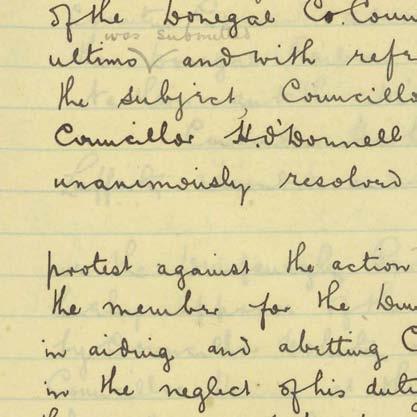 of the Donegal Co. Coun
was submitted
ultimo and with refr
the subject, Councillo
Councillor H. O'Donnell
unanimously resolved
protest against the action
the member for the
in aiding and abetting C
in the neglect of his duti